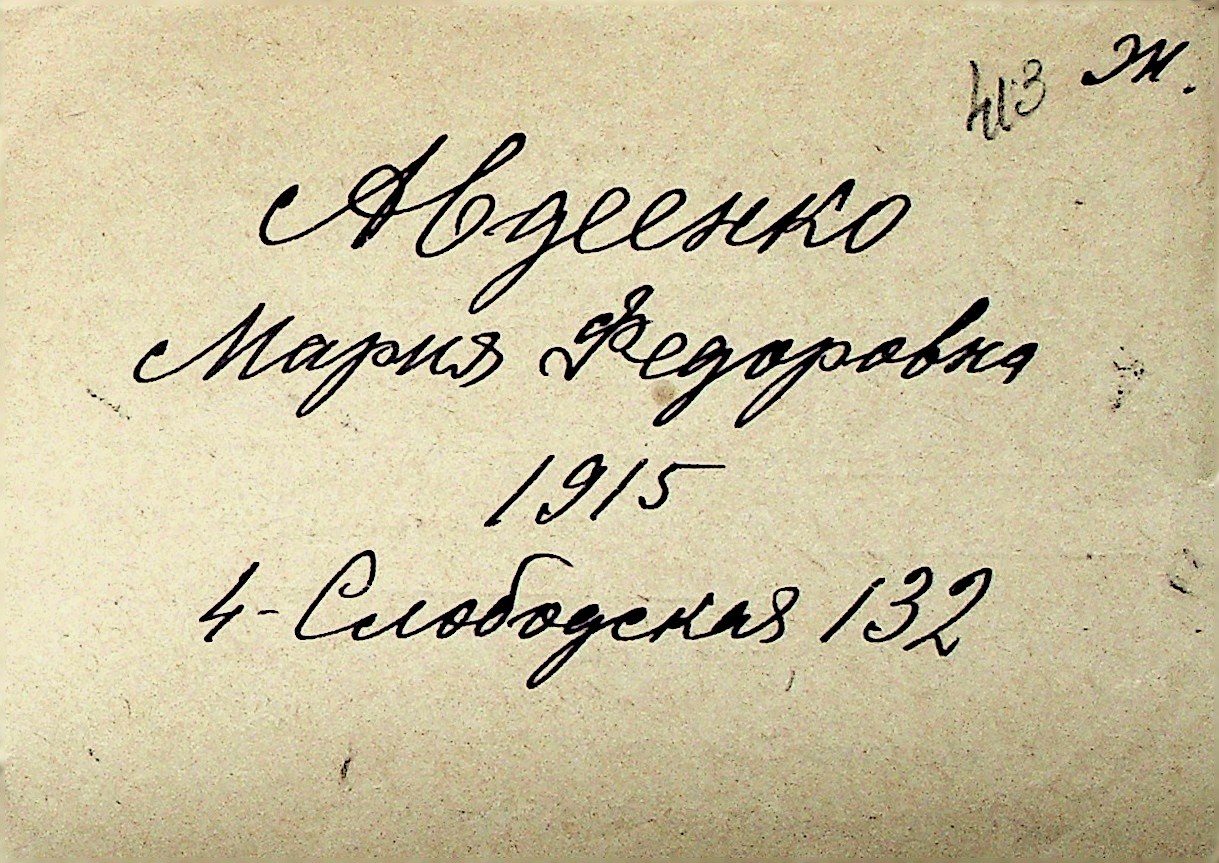 413 Ж.
Авдеенко
Мария Федоровна
1915
4-Слободская 132